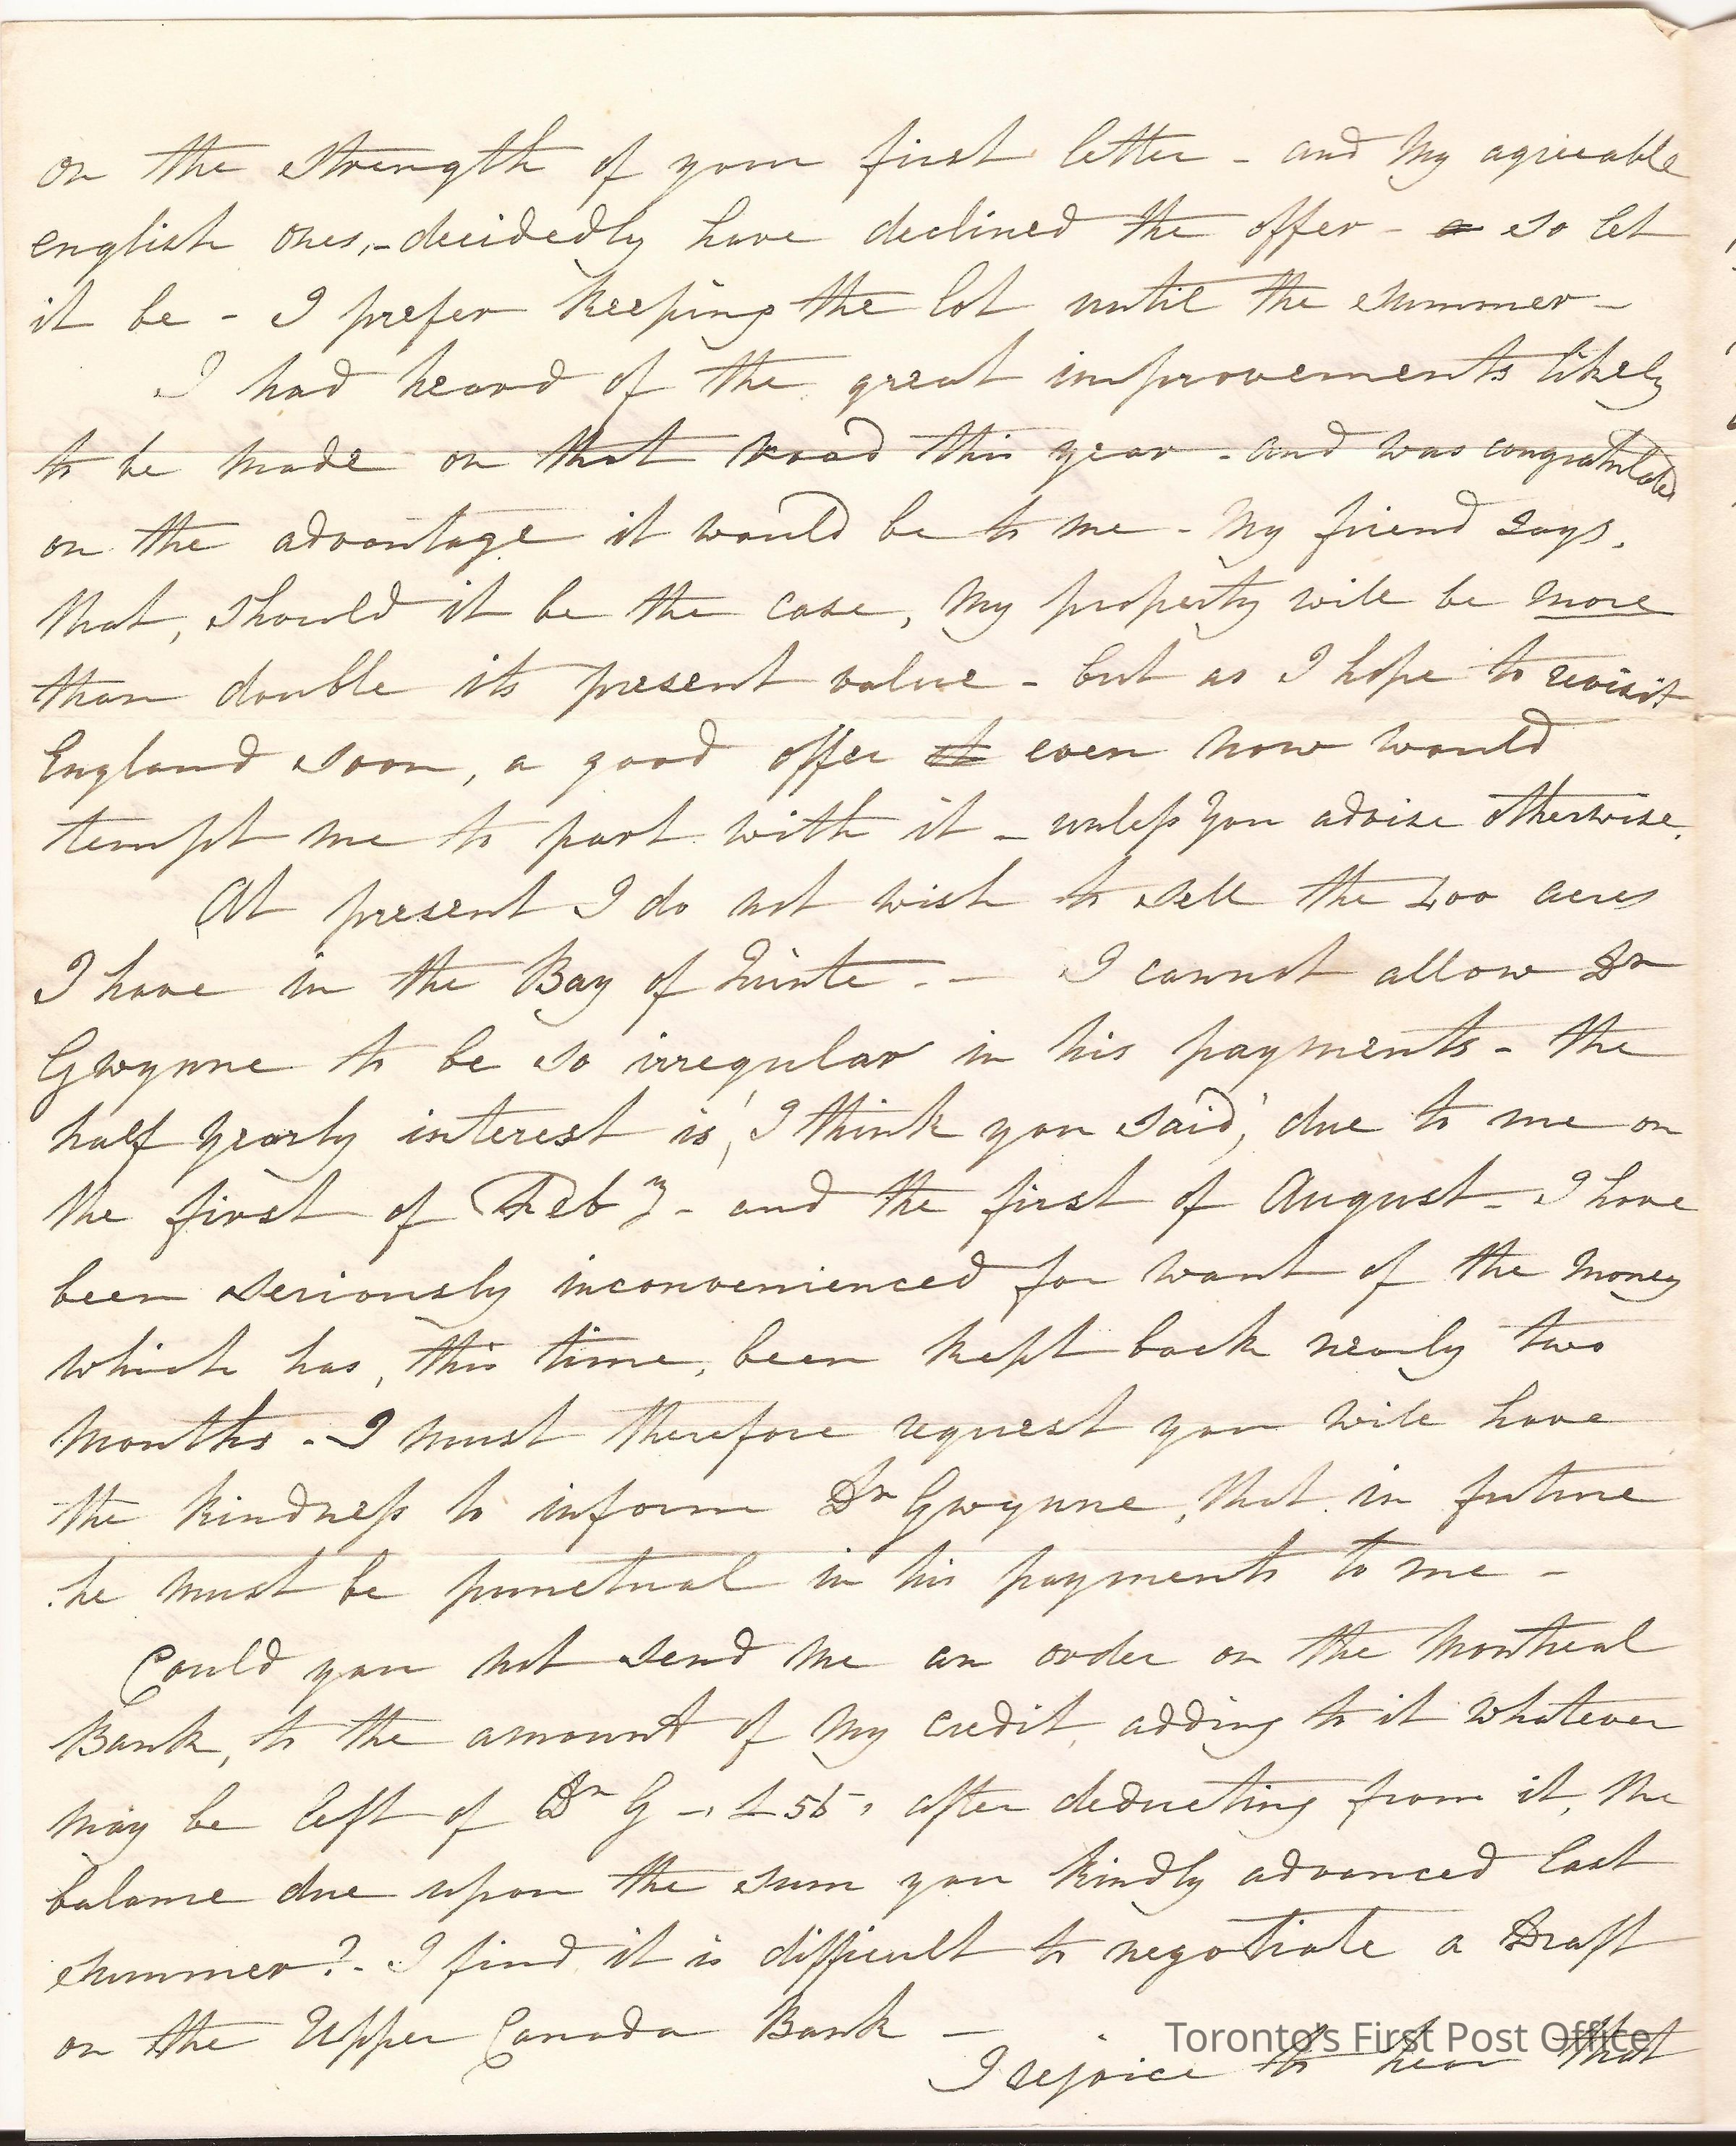 on the strength of your first letter - and my agreeable
english ones, - decidedly have declined the offer - so let
it be - I prefer keeping the lot until the summer -
I had heard of the great improvements likely
to be made on that road this year - and was congratulated
on the advantage it would be to me - My friend says,
that, should it be the case, my property will be more
than double its present value - but as I hope to revisit
England soon, a good offer even now would
tempt me to part with it - unless you advise otherwise.
At present I do not wish to sell the 400 acres
I have in the Bay of Quinte. - I cannot allow Dr
Gwynne to be so irregular in his payments - the
half yearly interest is, I think you said, due to me on
the first of Feby - and the first of August - I have
been seriously inconvenienced for want of the money
which has, this time, been kept back nearly two
months - I must therefore request you will have
the kindness to inform Dr Gwynne, that in future
he must be punctual in his payments to me -
Could you not send me an order on the Montreal
Bank, to the amount of my credit, adding to it whatever
may be left of Dr G - £ 55, after deducting from it, the
balance due upon the sum you kindly advanced last
summer? - I find it is difficult to negotiate a Draft
on the Upper Canada Bank -
Toronto's First Post Office
I rejoice to hear that